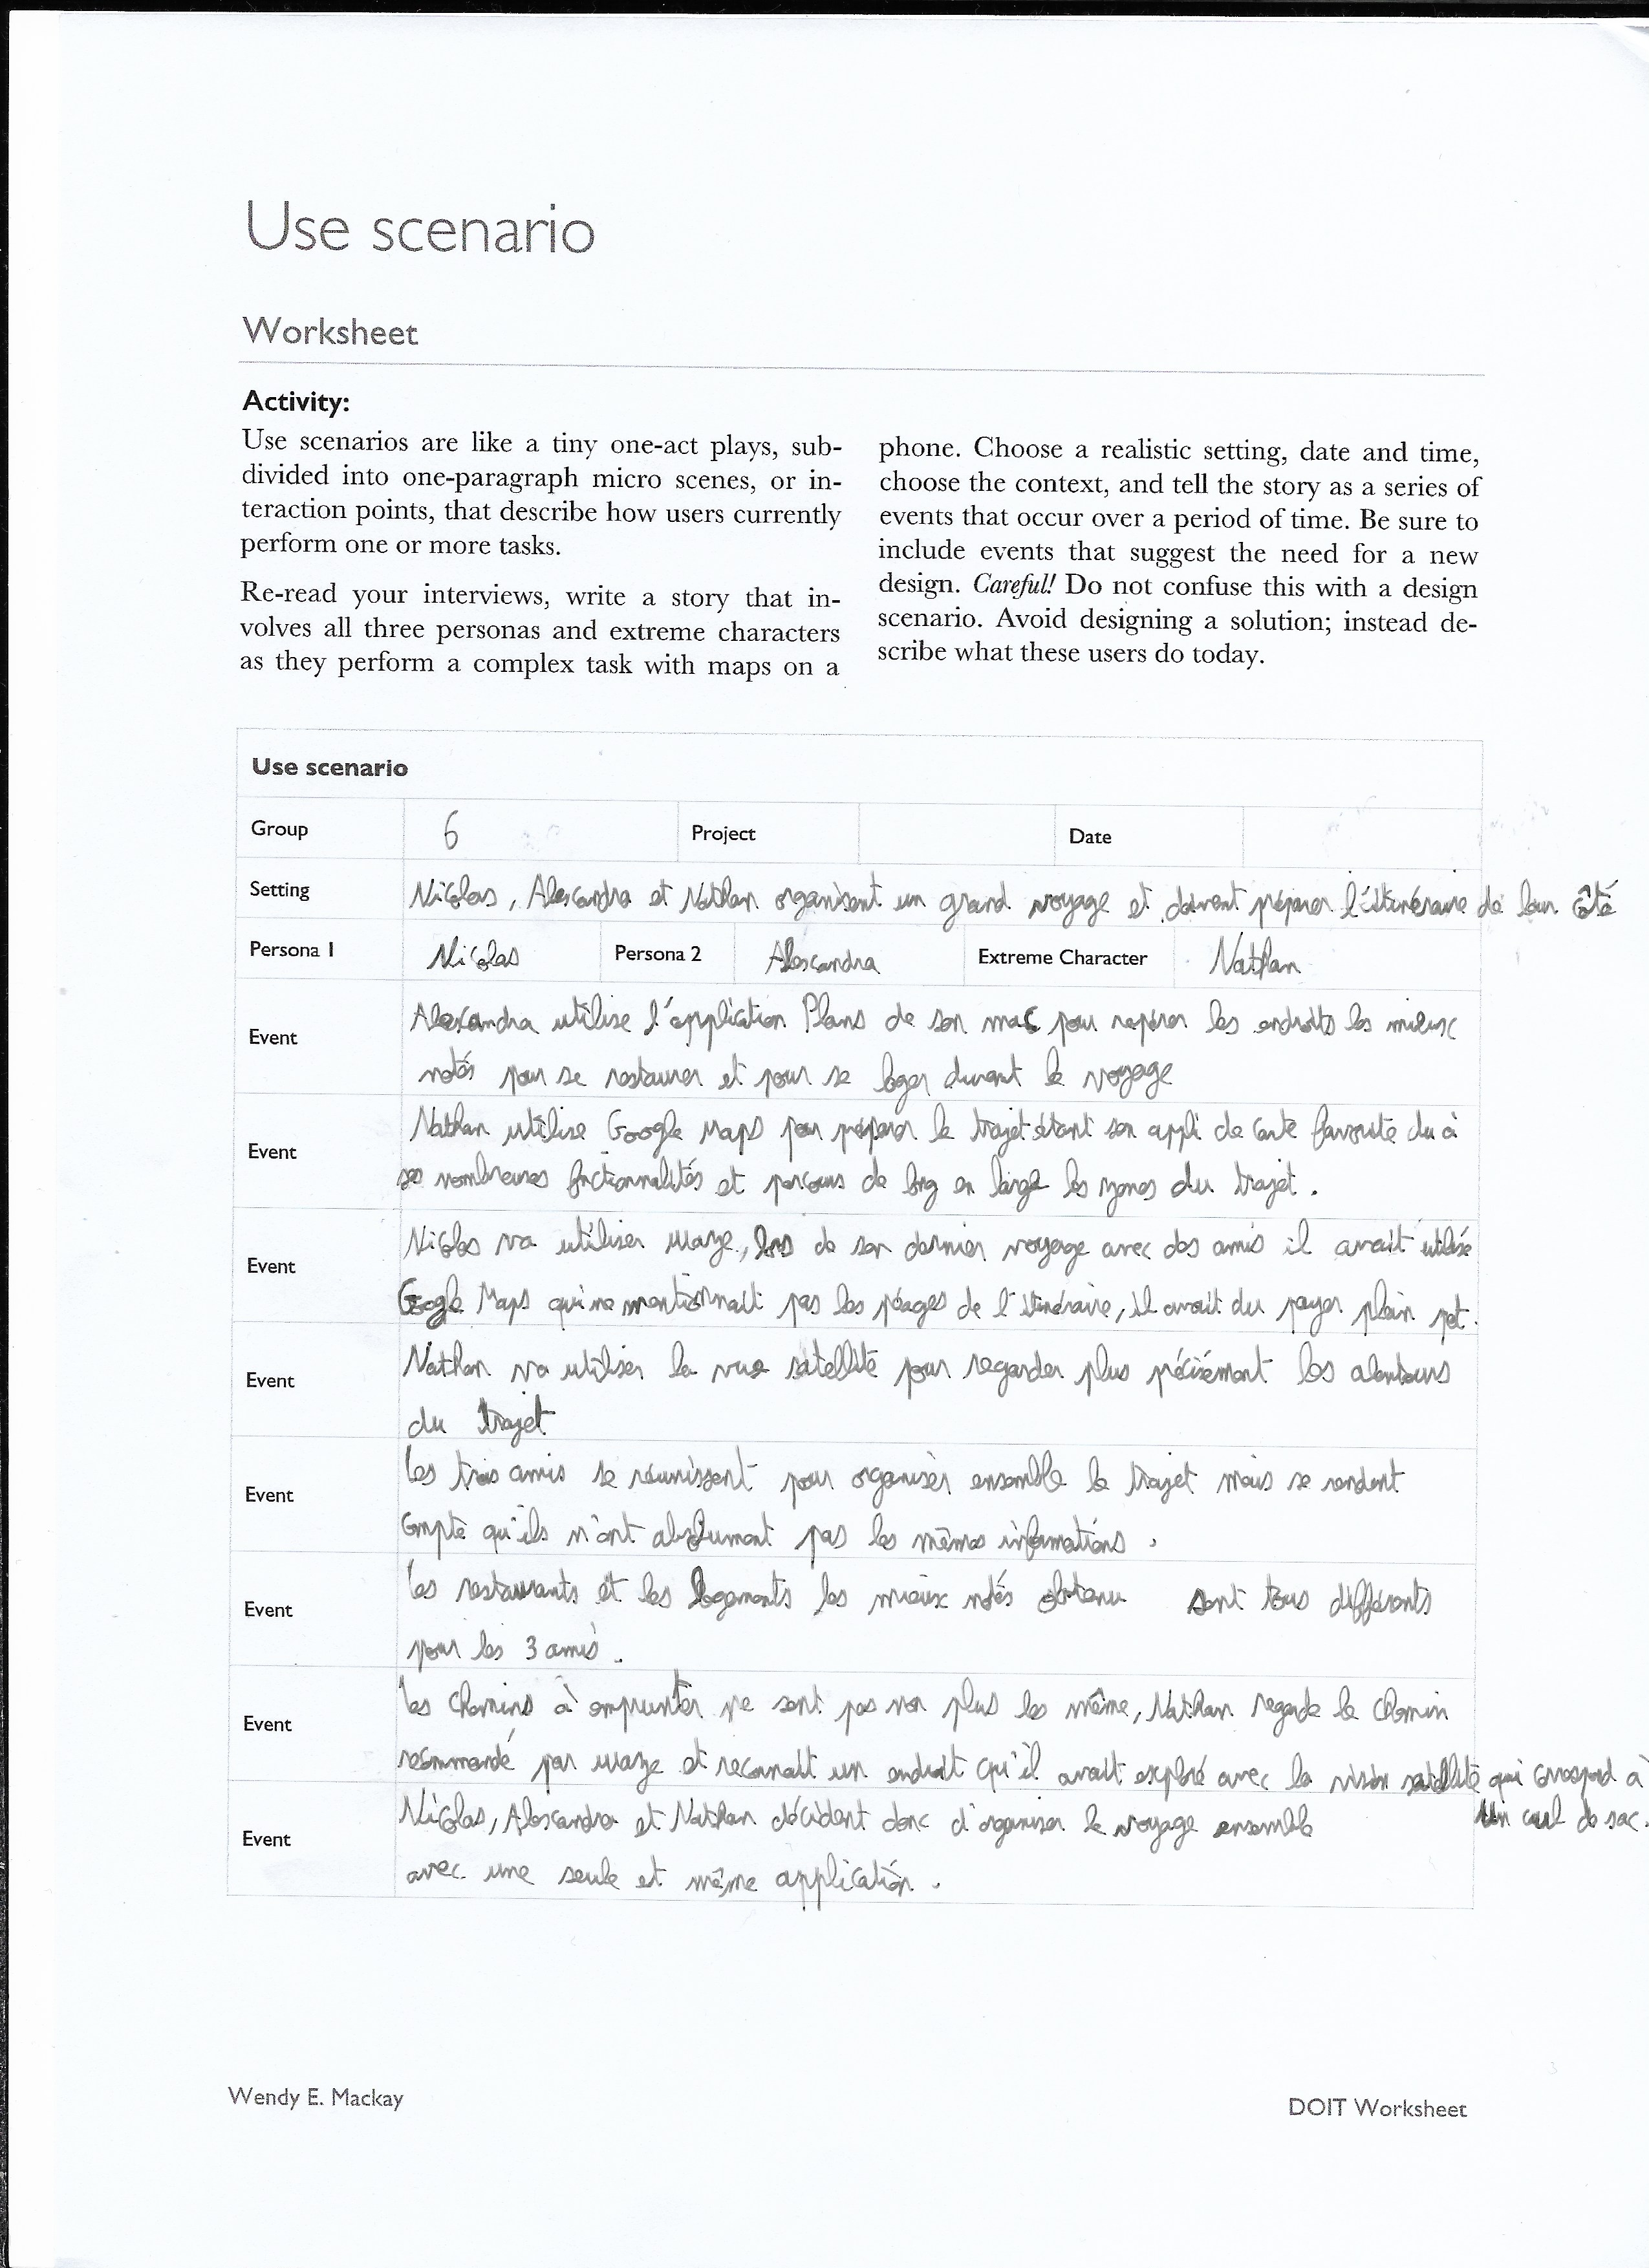 Use scenario
Worksheet
Activity:
Use scenarios are like a tiny one-act plays, sub-
divided into one-paragraph micro scenes, or in-
teraction points, that describe how users currently
perform one or more tasks.
Re-read your interviews, write a story that in-
volves all three personas and extreme characters
as they perform a complex task with maps on a
phone. Choose a realistic setting, date and time,
choose the context, and tell the story as a series of
events that occur over a period of time. Be sure to
include events that suggest the need for a new
design. Careful! Do not confuse this with a design
scenario. Avoid designing a solution; instead de-
scribe what these users do today.
Use scenario
Group 6 Project Date
Setting Nicolas, Alexandra et Nathan organisent un grand voyage et doivent préparer l'itinéraire de leur côté
Persona 1 Nicolas Persona 2 Alexandra Extreme Character Nathan
Event Alexandra utilise l'application Plans de son mac pour repérer les endroits les mieux
notés pour se restaurer et pour se loger durant le voyage
Event Nathan utilise Google Maps pour préparer le trajet étant son appli de carte favorite du à
ses nombreuses fonctionnalités et parcours de long en large les zones du trajet.
Event Nicolas va utiliser waze, lors de son dernier voyage avec des amis il avait utilisé
Google Maps qui ne mentionnait pas les péages de l'itinéraire, il avait du payer plein pot.
Event Nathan va utiliser la vue satellite pour regarder plus précisément les alentours
du trajet
Event Les trois amis se réunissent pour organiser ensemble le trajet mais se rendent
compte qu'ils n'ont absolument pas les mêmes informations.
Event Les restaurants et les logements les mieux notés obtenu sont tous différents
pour les 3 amis.
Event Les chemins à emprunter ne sont pas non plus les même, Nathan regarde le chemin
recommandé par waze et reconnait un endroit qu'il avait exploré avec la vision satellite qui correspond à
un cul de sac.
Event Nicolas, Alexandra et Nathan décident donc d'organiser le voyage ensemble
avec une seule et même application.
Wendy E. Mackay
DOIT Worksheet